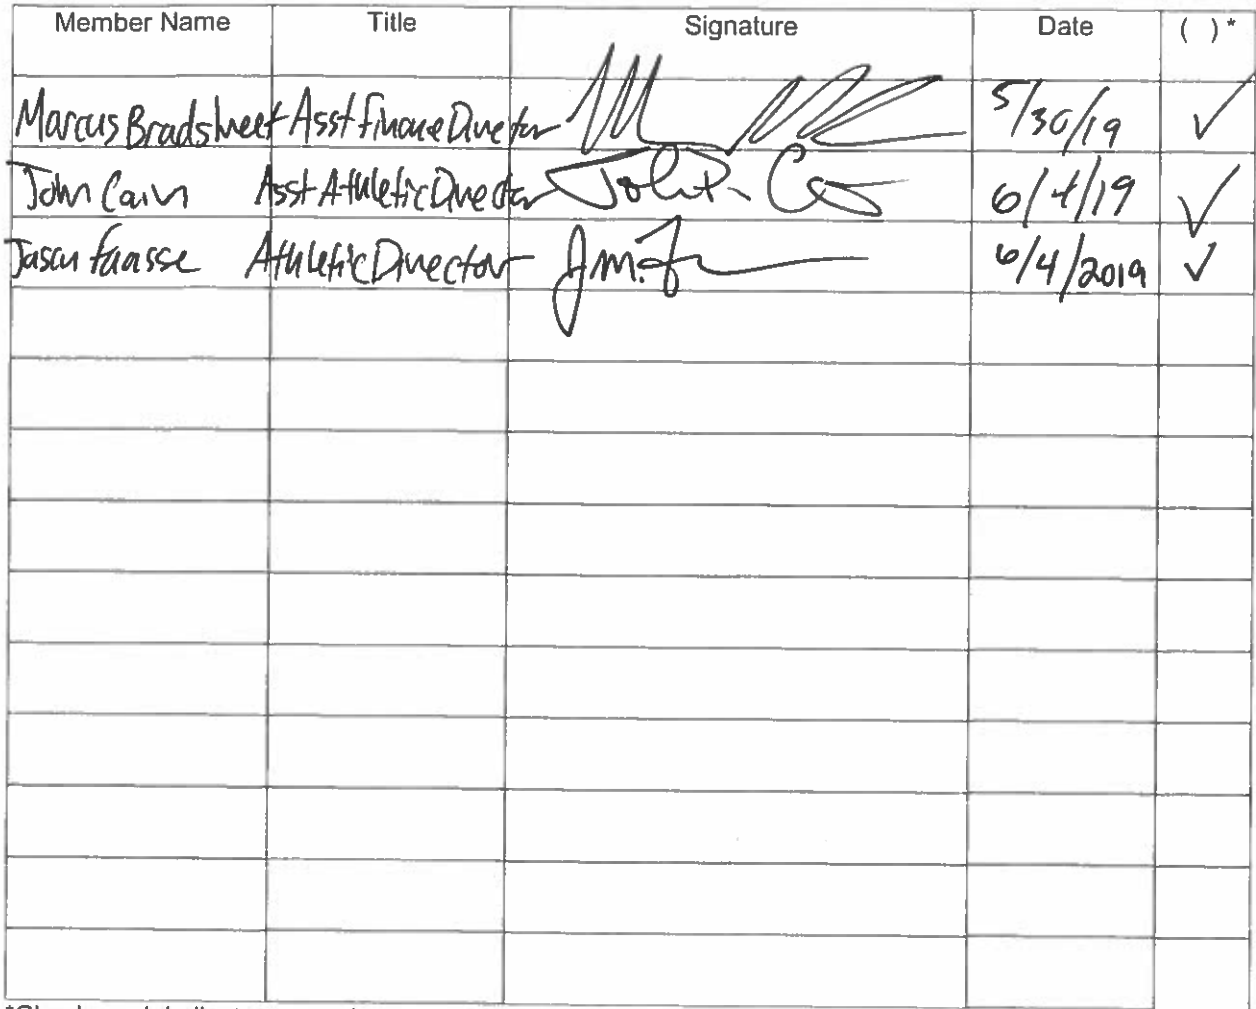 Member Name Title Signature Date ( ) *
Marcus Bradstreet Asst Finance Director 5/30/19 ✓
John Cain Asst Athletic Director John P. C 6/4/19 ✓
Jason Faasse Athletic Director J.M. F 6/4/2019 ✓